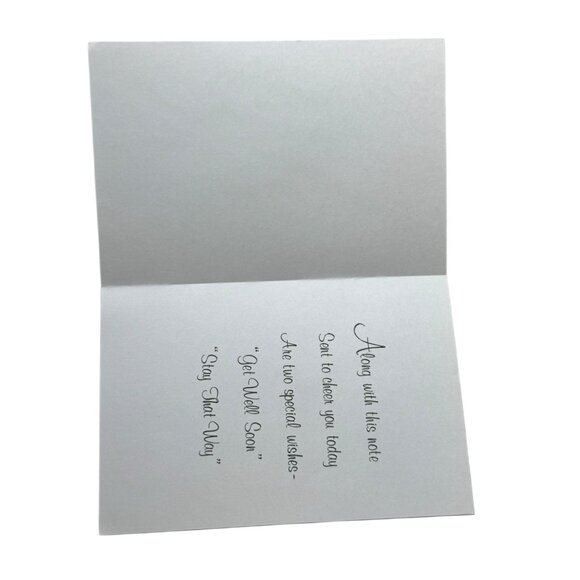 Along with this note
Sent to cheer you today
Are two special wishes-
"Get Well Soon"
"Stay That Way"